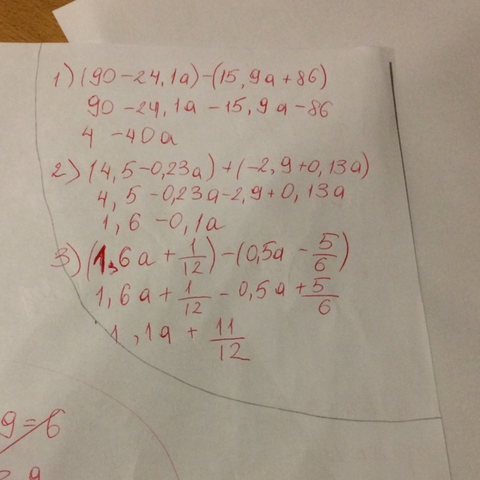 1) (90-24,1a)-(15,9a+86)
90-24,1a-15,9a-86
4 -40a
2) (4,5-0,23a)+(-2,9+0,13a)
4,5-0,23a-2,9+0,13a
1,6-0,1a
3) (1,6a+1/12)-(0,5a-5/6)
1,6a+1/12-0,5a+5/6
1,1a+11/12
9=6